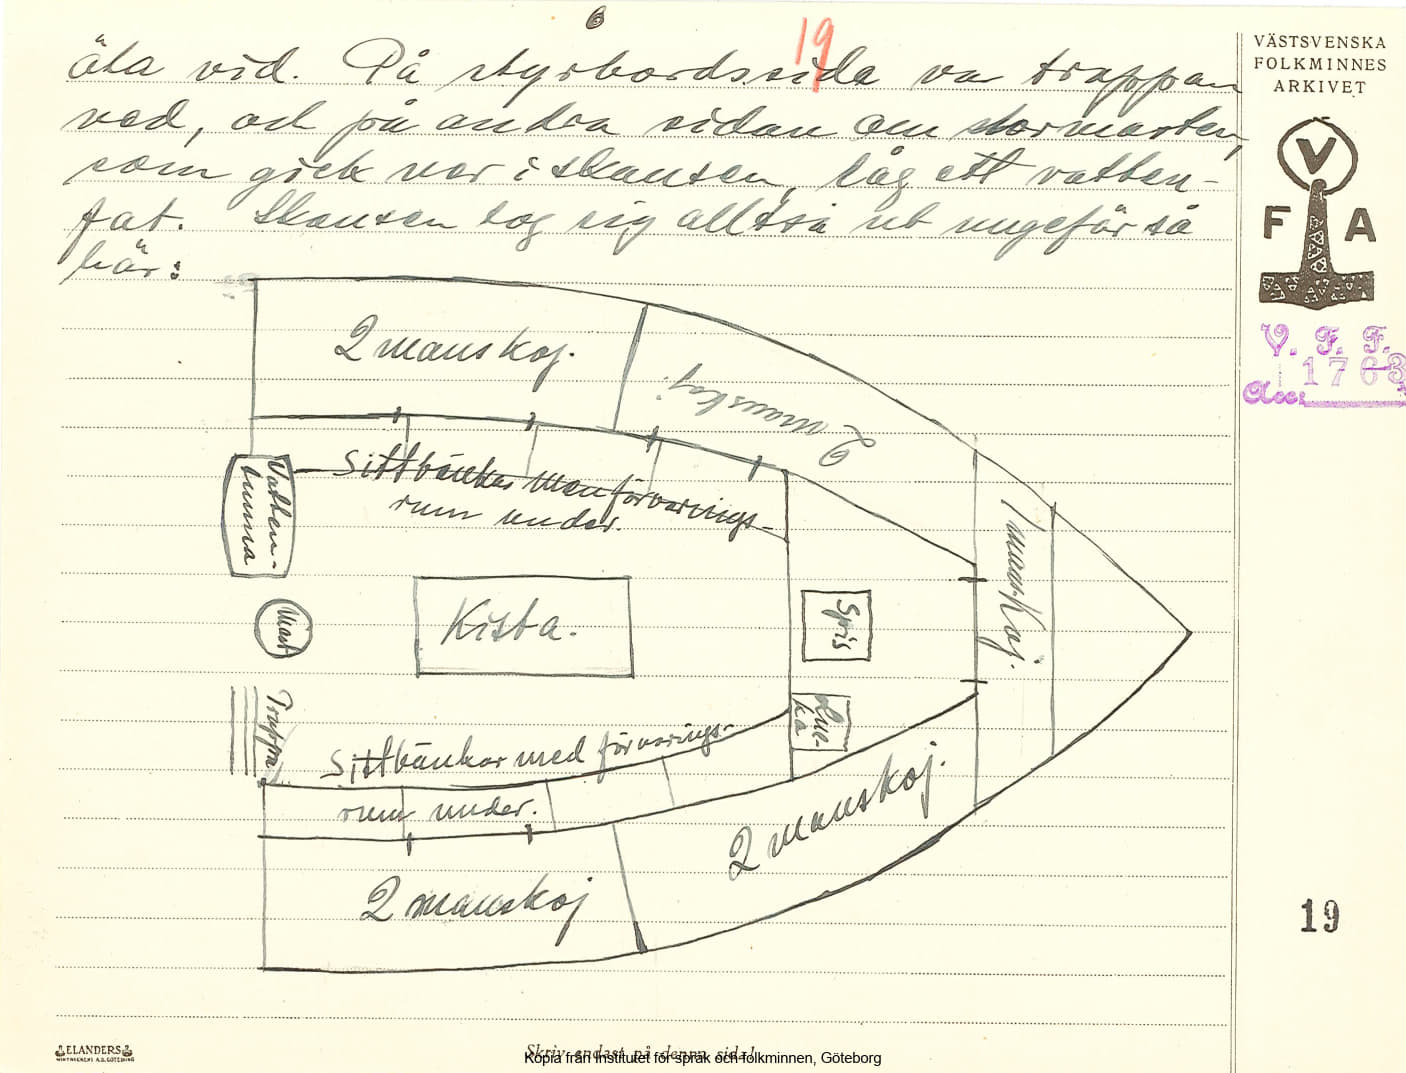 6
19
VÄSTSVENSKA
FOLKMINNES
ARKIVET
äta vid. På styrbordssida va trappan
ned, och på andra sidan om stormasten,
som gick ner i skansen, låg ett vatten-
fat. Skansen tog sig alltså ut ungefär så
här:
V
F A
V. F. F.
1763
Acc.
2 manskoj.
2 manskoj
Sittbänkar men förvarings-
rum under.
Vatten-
tunna
1 mans koj.
Mast
Kista.
Spis
Luc-
ka
Trappa
Sittbänkar med förvarings-
rum under.
2 manskoj.
2 manskoj
19
ELANDERS
Skriv endast på denna sida!
Kopia från Institutet för språk och folkminnen, Göteborg